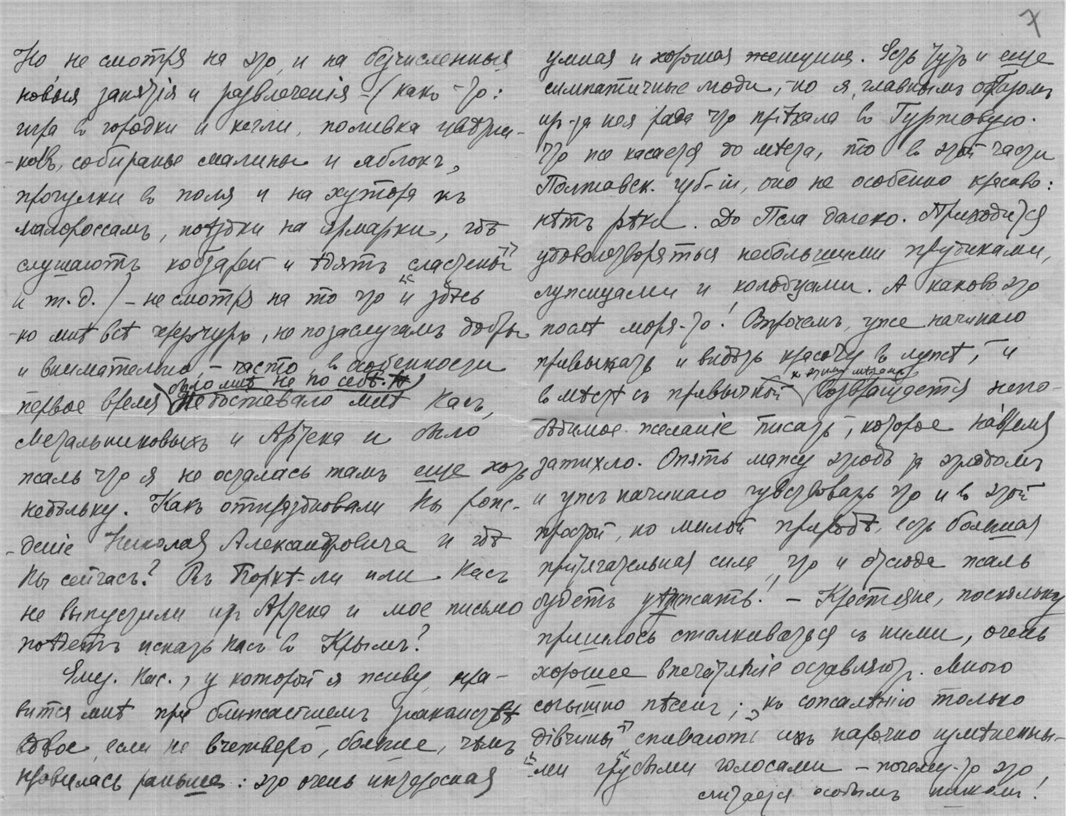 7
Но не смотря на это и на безчисленныя
новыя занятія и развлеченія – (какъ-то:
игра в городки и кегли, поливка цвѣтни-
-ковъ, собиранье малины и яблокъ,
прогулки в поля и на хутора къ
малороссамъ, поѣздки на ярмарки, гдѣ
слушаютъ кобзарей и ѣдятъ „сластены"
и т. д.) – не смотря на то что и здѣсь
ко мнѣ всѣ чересчуръ, не по заслугамъ добры
и внимательны, – часто в особенности
первое время было мнѣ не по себѣ.
Недоставало мнѣ Васъ,
Метальниковыхъ и Артека и было
жаль что я не осталась тамъ еще хоть
недѣльку. Какъ отпраздновали Вы рож-
-деніе Николая Александровича и гдѣ
Вы сейчасъ? Въ Боркѣ-ли или Васъ
не выпустили из Артека и мое письмо
поѣдетъ искать Васъ в Крымъ?
Вас., у которой я живу, нра-
вится мнѣ при ближайшемъ знакомствѣ
вдвое, если не вчетверо, больше, чѣмъ
нравилась раньше: это очень интересная
умная и хорошая женщина. Есть тутъ и еще
симпатичные люди, но я, главнымъ образомъ
из-за нея рада что пріѣхала в Гуржовую.
Что же касается до мѣста, то в этой части
Полтавск. губ-іи, оно не особенно красиво:
нѣтъ рѣки. До Псла далеко. Приходится
удовлетворяться небольшими прудиками,
лужицами и колодцами. А каково это
послѣ моря-то! Впрочемъ, уже начинаю
привыкать и видѣть красоту в лужѣ, – и
вмѣстѣ съ привычкой к этимъ мѣстамъ возвращается непо-
бѣдимое желаніе писать, которое на время
затихло. Опять мажу этюдъ за этюдомъ
и ужъ начинаю чувствовать что и в этой
простой, но милой природѣ, есть большая
притягательная сила, что и отсюда жаль
будетъ уѣзжать! – Крестьяне, поскольку
пришлось сталкиваться съ ними, очень
хорошее впечатлѣніе оставляютъ. Много
слышно пѣсенъ; къ сожалѣнію только
„дівчины" спиваютъ ихъ нарочно измѣненны-
-ми „грубыми" голосами – почему-то это
считается особымъ шикомъ!